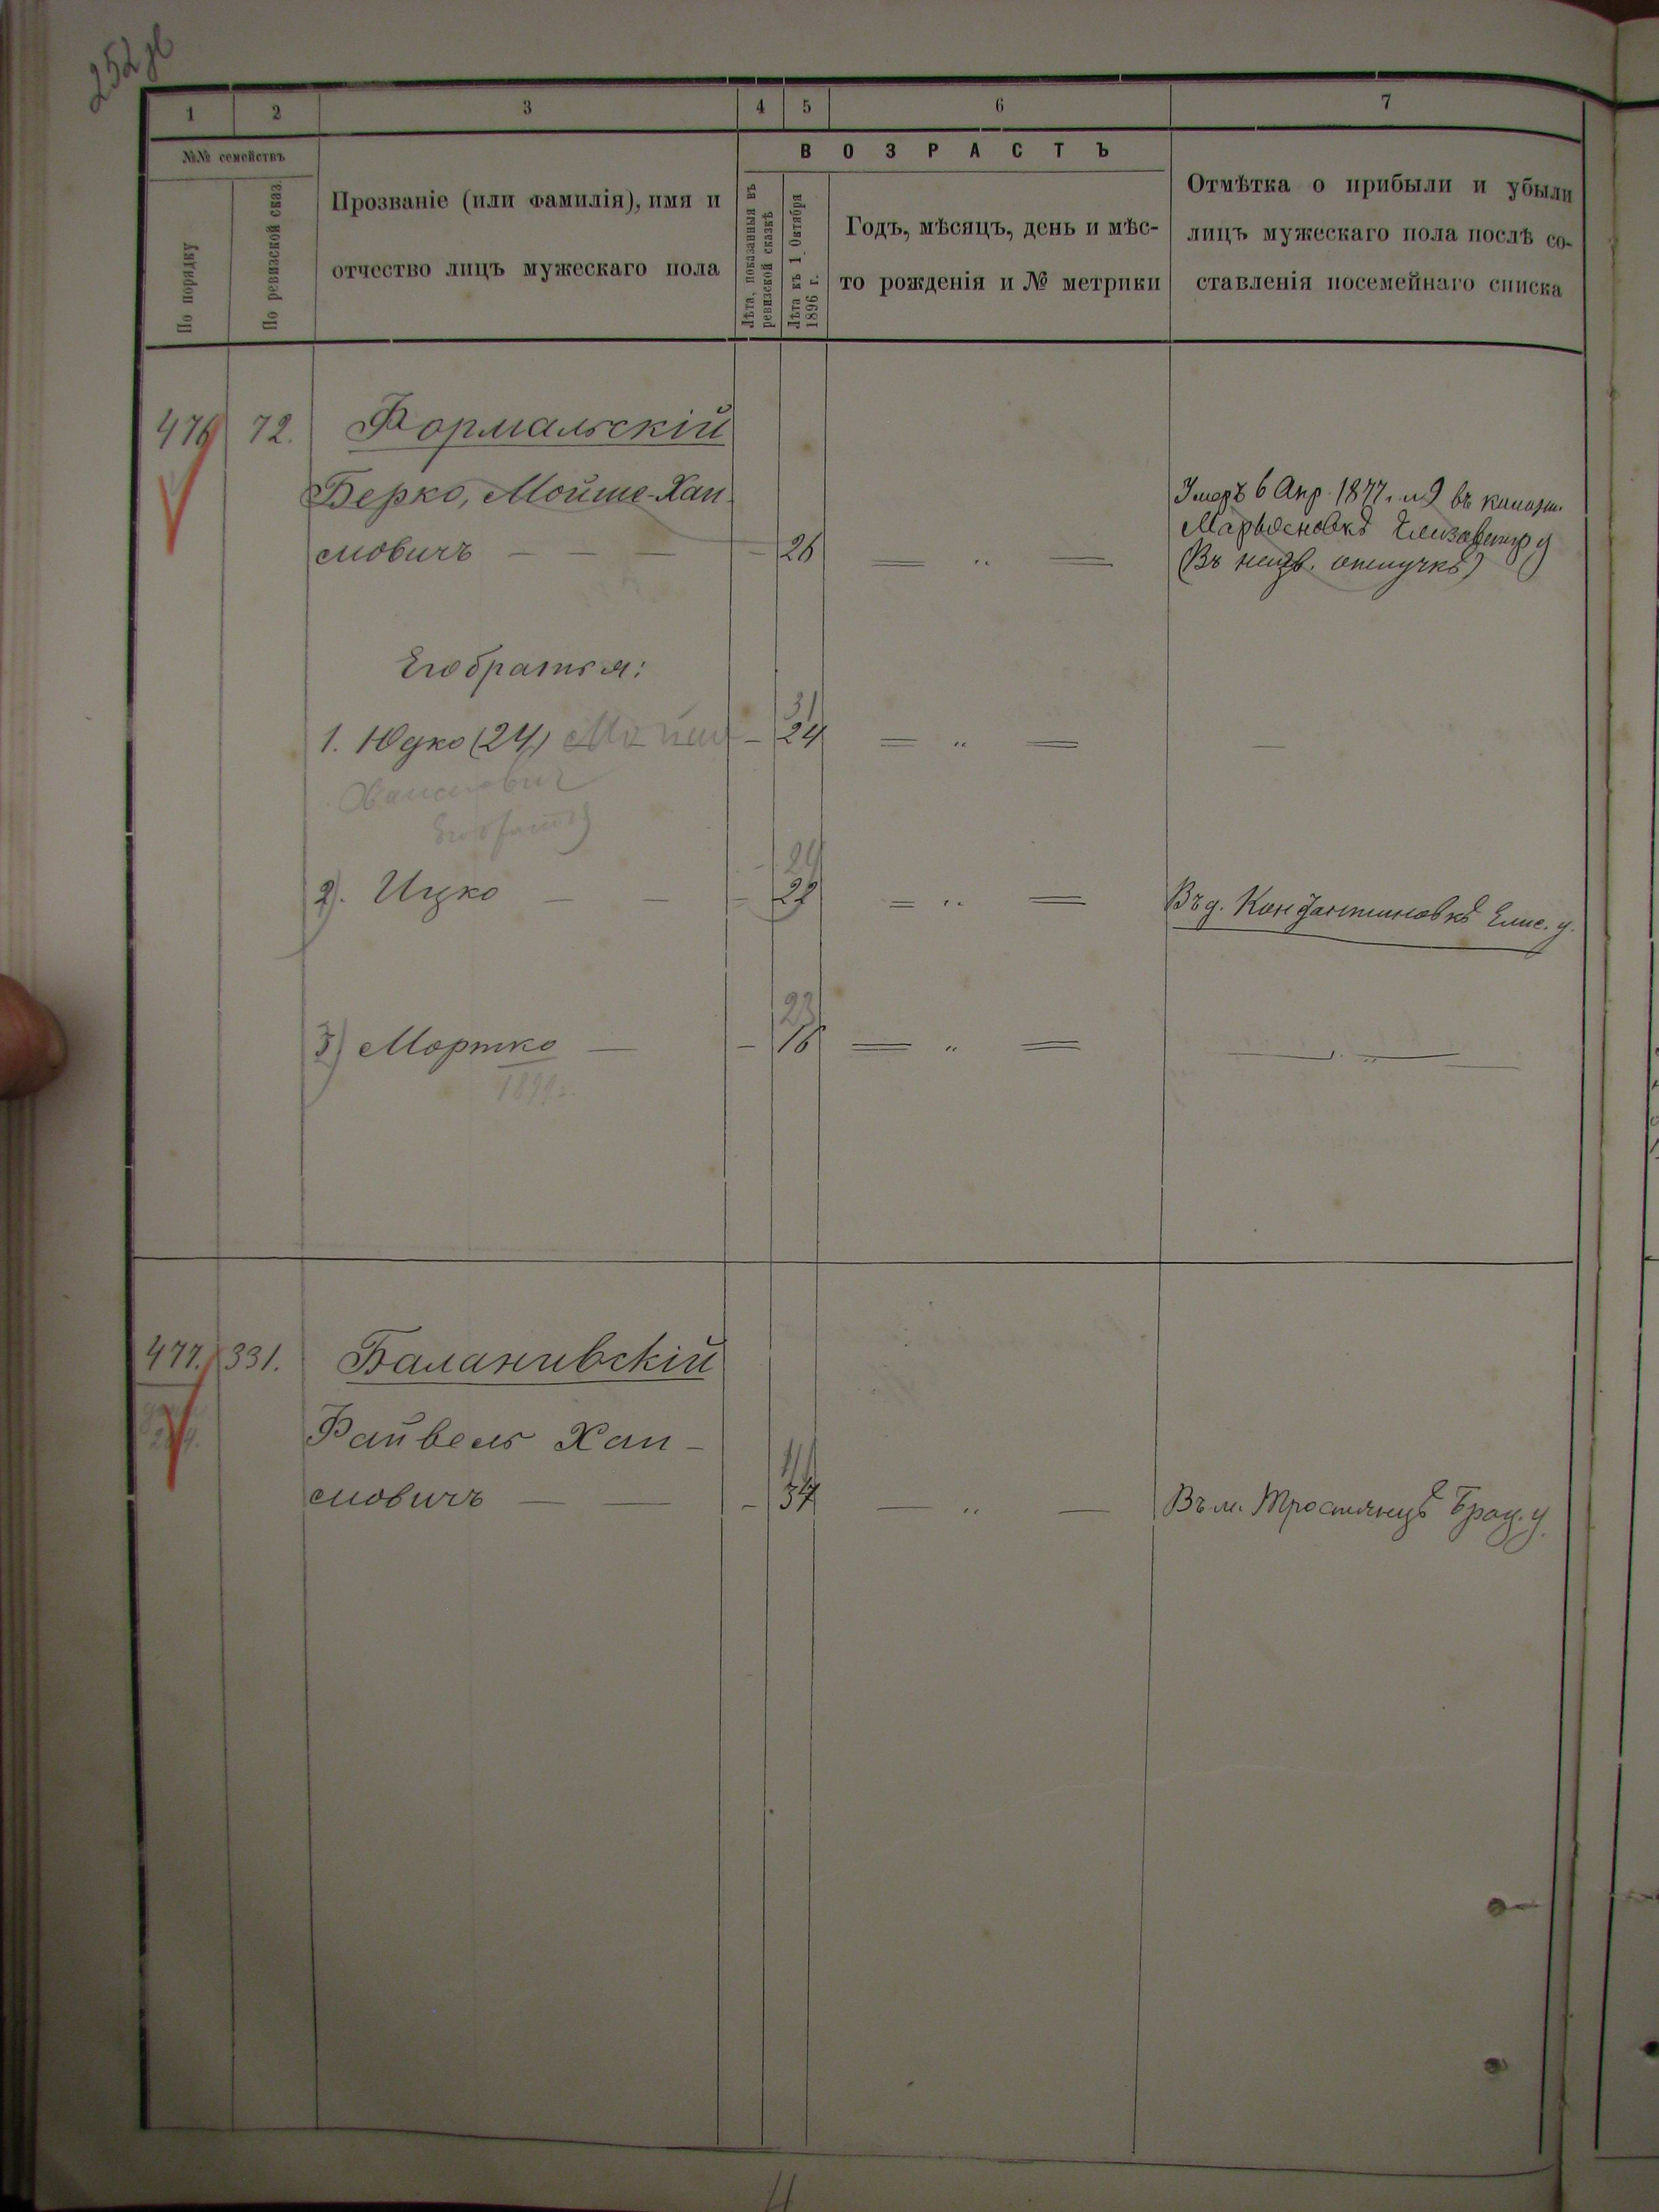 1 2 3 4 5 6 7
№№ семействъ
По порядку
По ревизской сказ.
Прозваніе (или фамилія), имя и
отчество лицъ мужескаго пола
ВОЗРАСТЪ
Лѣта, показанныя въ
ревизской сказкѣ
Лѣта къ 1 Октября
1896 г.
Годъ, мѣсяцъ, день и мѣс-
то рожденія и № метрики
Отмѣтка о прибыли и убыли
лицъ мужескаго пола послѣ со-
ставленія посемейнаго списка
476 72. Формальскій
Берко, Мойше-Хаи-
мовичъ — — — — 26 — " —
Умеръ 6 Апр. 1877. №9 въ
Марьяновкѣ Елизаветгр у
(Въ неизв. отлучкѣ)
Его братья:
31
1. Юдко (24) Мойше — 24 — " — —
Хаимович
Его братья
24
2). Ицко — — — 22 — " — Въ д. Константиновкѣ Елис. у.
23
3) Мортко — — 16 — " — — " —
477. 331. Баланивскій
Файвель Хаи-
мовичъ — — — 34 — " — Въ м. Тростянцѣ Брац. у.